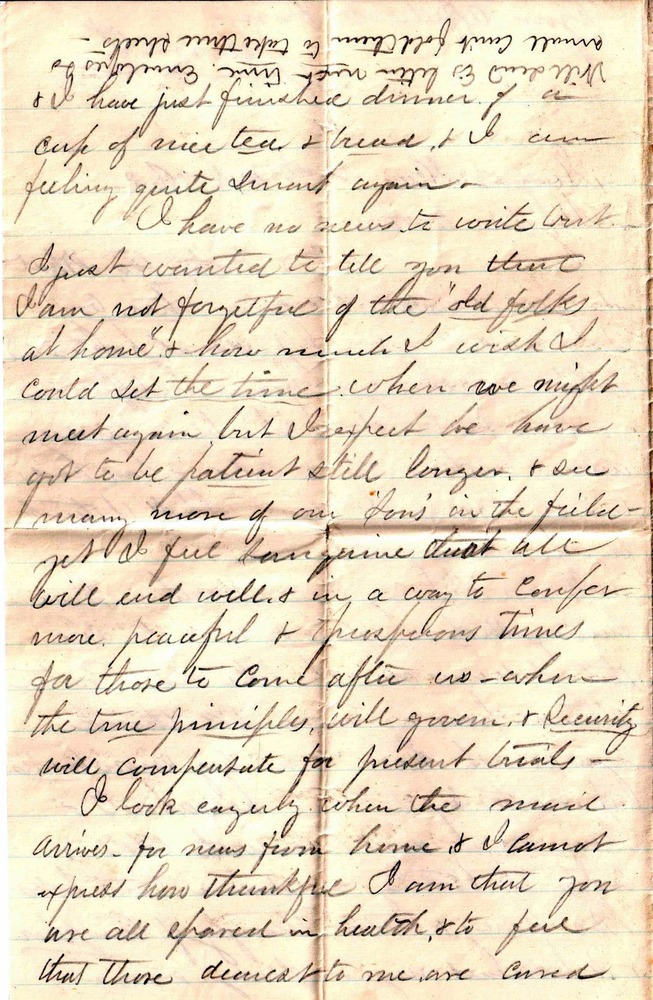 Will send Es letter next time. Envelopes so
small cant fold them to take three sheets -
& I have just finished dinner of a
cup of nice tea & bread, & I am
feeling quite smart again -
I have no news to write but
I just wanted to tell you that
I am not forgetful of the "old folks
at home" & how much I wish I
could set the time when we might
meet again but I expect we have
got to be patient still longer, & see
many more of our Sons in the field -
yet I feel sanguine that all
will end well, & in a way to confer
more peaceful & prosperous times
for those to come after us - when
the true principles, will govern, & Security
will compensate for present trials -
I look eagerly when the mail
arrives - for news from home, & I cannot
express how thankful I am that you
are all spared in health, & to feel
that those dearest to me, are cared